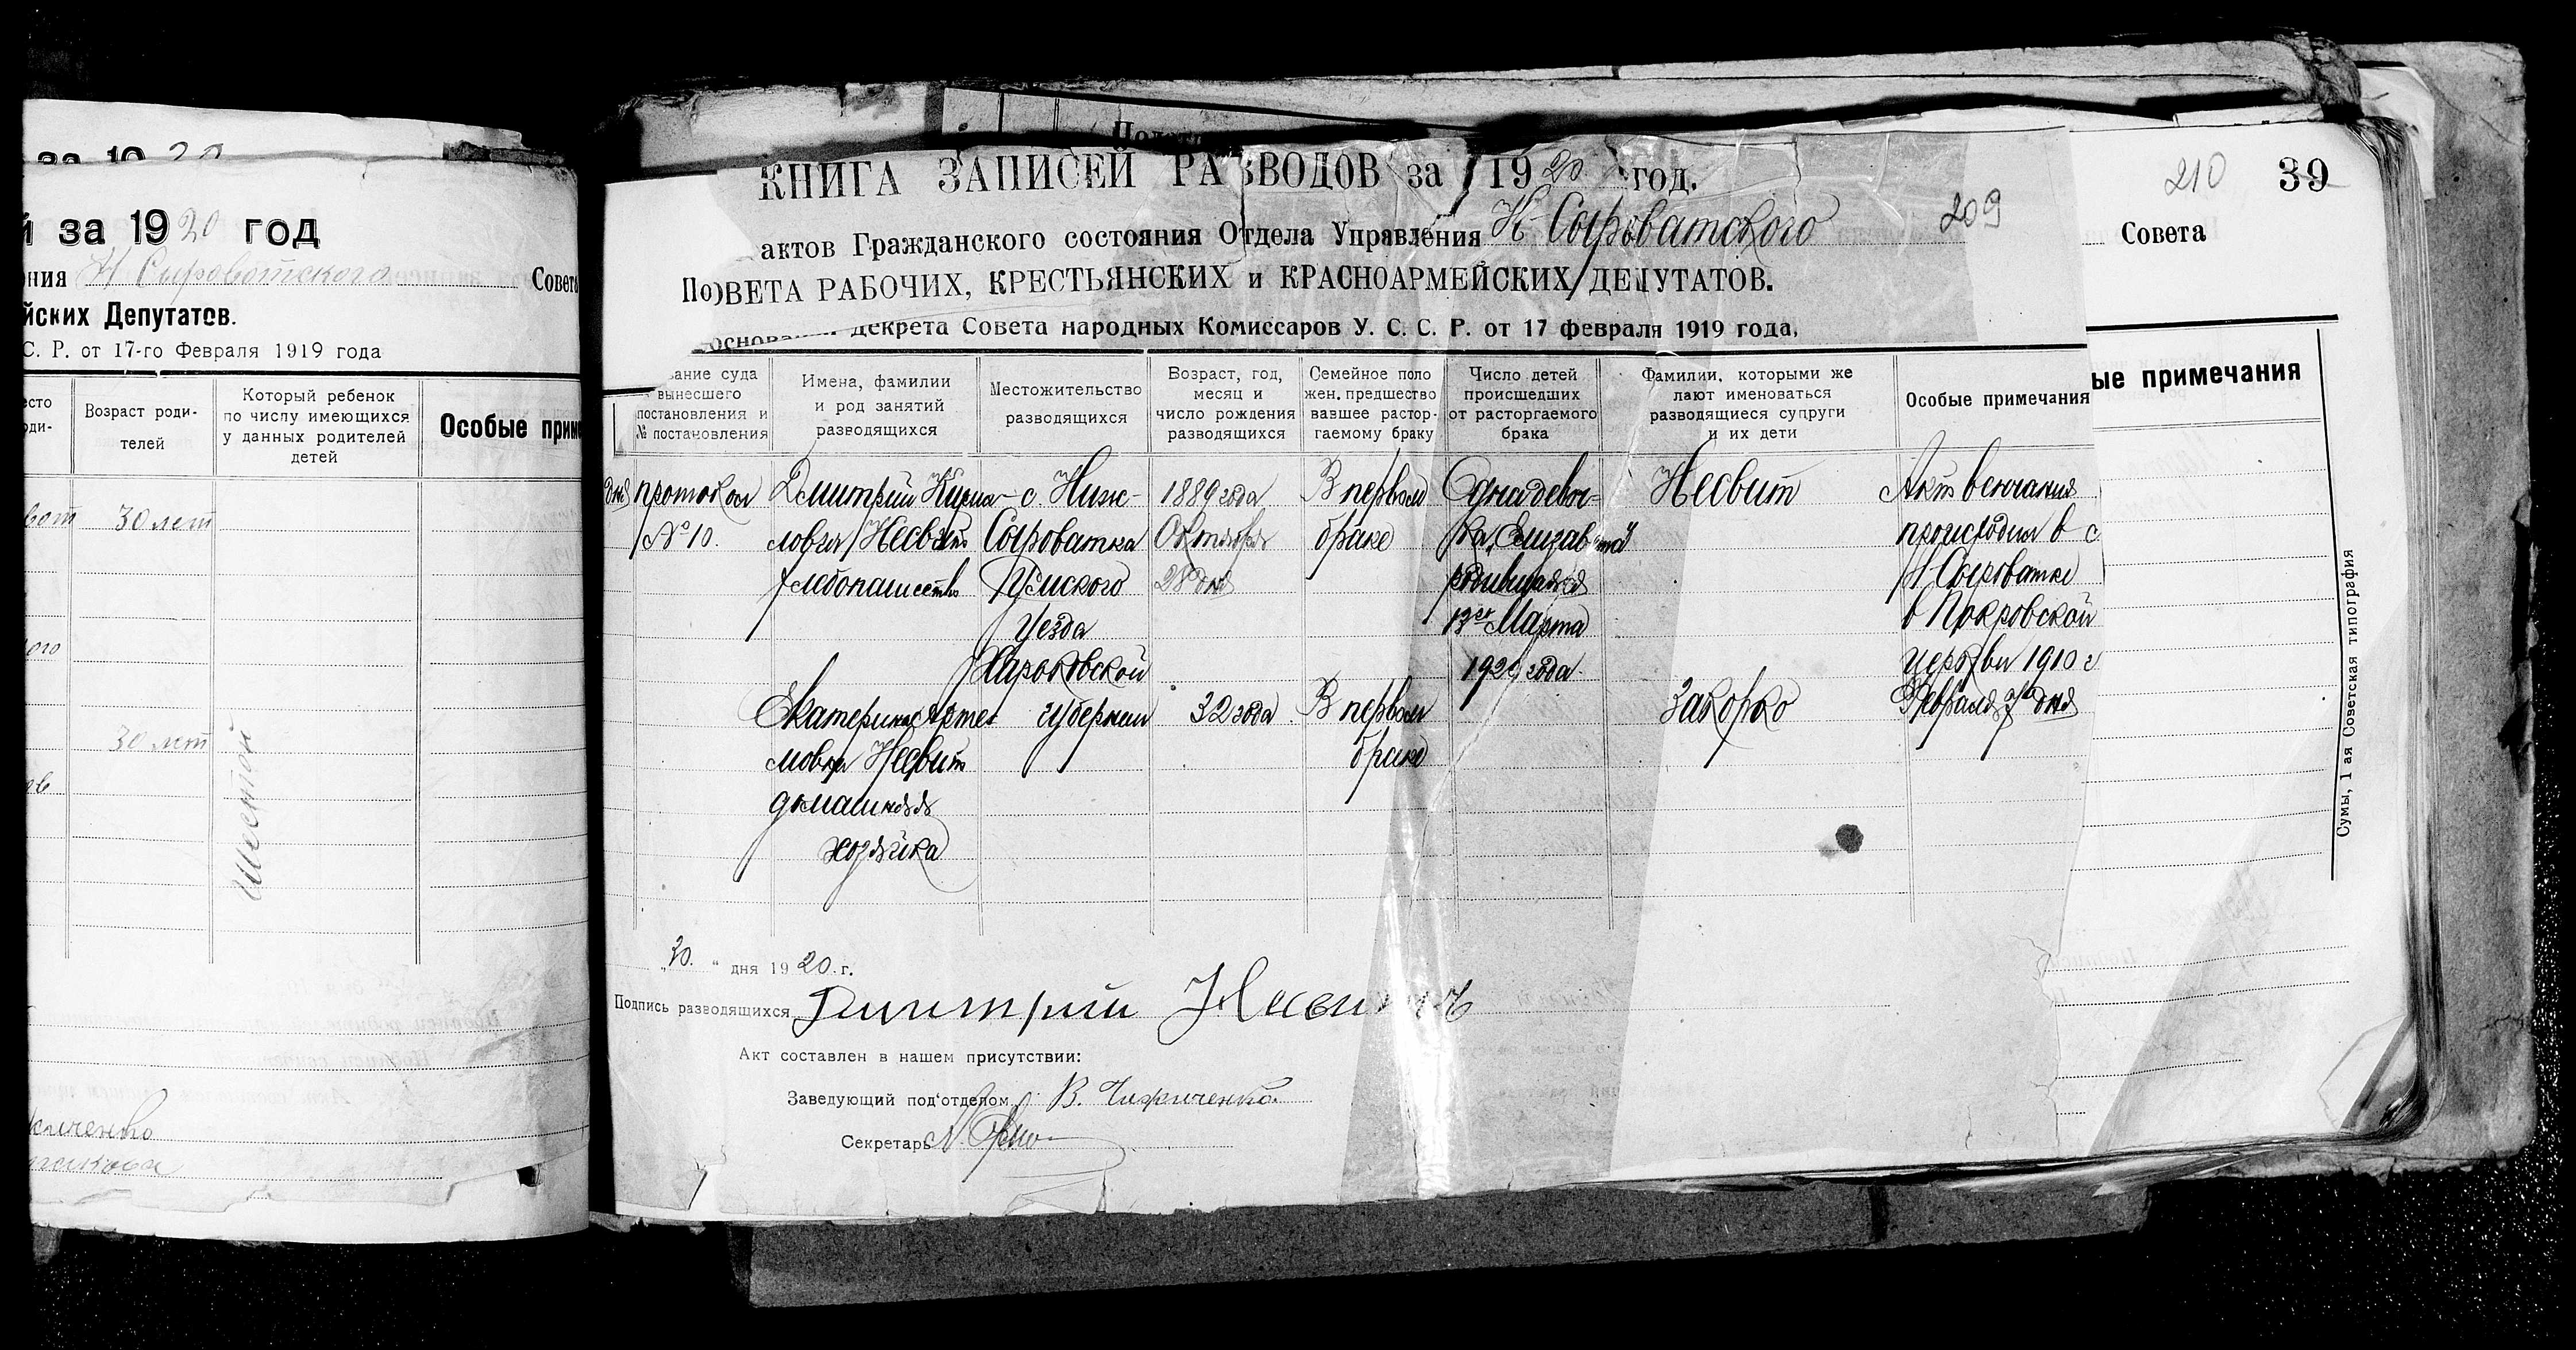 за 1920
й за 1920 год
ния Н Сыроватского Совета
йских Депутатов.
С. Р. от 17-го Февраля 1919 года
Возраст роди-
телей
Который ребенок
по числу имеющихся
у данных родителей
детей
Особые
30 лет
30 лет
Шестой
КНИГА ЗАПИСЕЙ РАЗВОДОВ за 1920 год.
209
210
39
актов Гражданского состояния Отдела Управления Н-Сыроватского
Совета
РАБОЧИХ, КРЕСТЬЯНСКИХ и КРАСНОАРМЕЙСКИХ ДЕПУТАТОВ.
декрета Совета Народных Комиссаров У. С. С. Р. от 17 февраля 1919 года,
звание суда
вынесшего
постановления и
№ постановления
Имена, фамилии
и род занятий
разводящихся
Местожительство
разводящихся
Возраст, год,
месяц и
число рождения
разводящихся
Семейное поло
жен. предшество
вавшее растор-
гаемому браку
Число детей
происшедших
от расторгаемого
брака
Фамилии, которыми же
лают именоваться
разводящиеся супруги
и их дети
Особые примечания
ые примечания
протокол
№ 10.
Дмитрий Кирил-
лович Несвит
хлебопашество
с. Ниж-
Сыроватка
Сумского
Уезда
Харьковской
губернии
1889 года
Октября
28 дня
В первом
браке
Одна девоч=
ка, Елизавета
родившаяся
Марта
года
Несвит
Акт венчания
происходил в с
Н Сыроватке
в Покровской
церкви 1910 г
Февраля 7го дня
Екатерина Арте-
мовна Несвит
домашняя
хозяйка
32 года
В первом
браке
Закорко
Сумы, 1 ая Советская типография
дня 1920. г.
Подпись разводящихся Дмитрий Несвит
Акт составлен в нашем присутствии:
Заведующий под'отделом В.
Секретарь